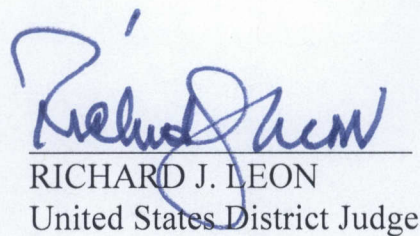 Richard J. Leon
RICHARD J. LEON
United States District Judge